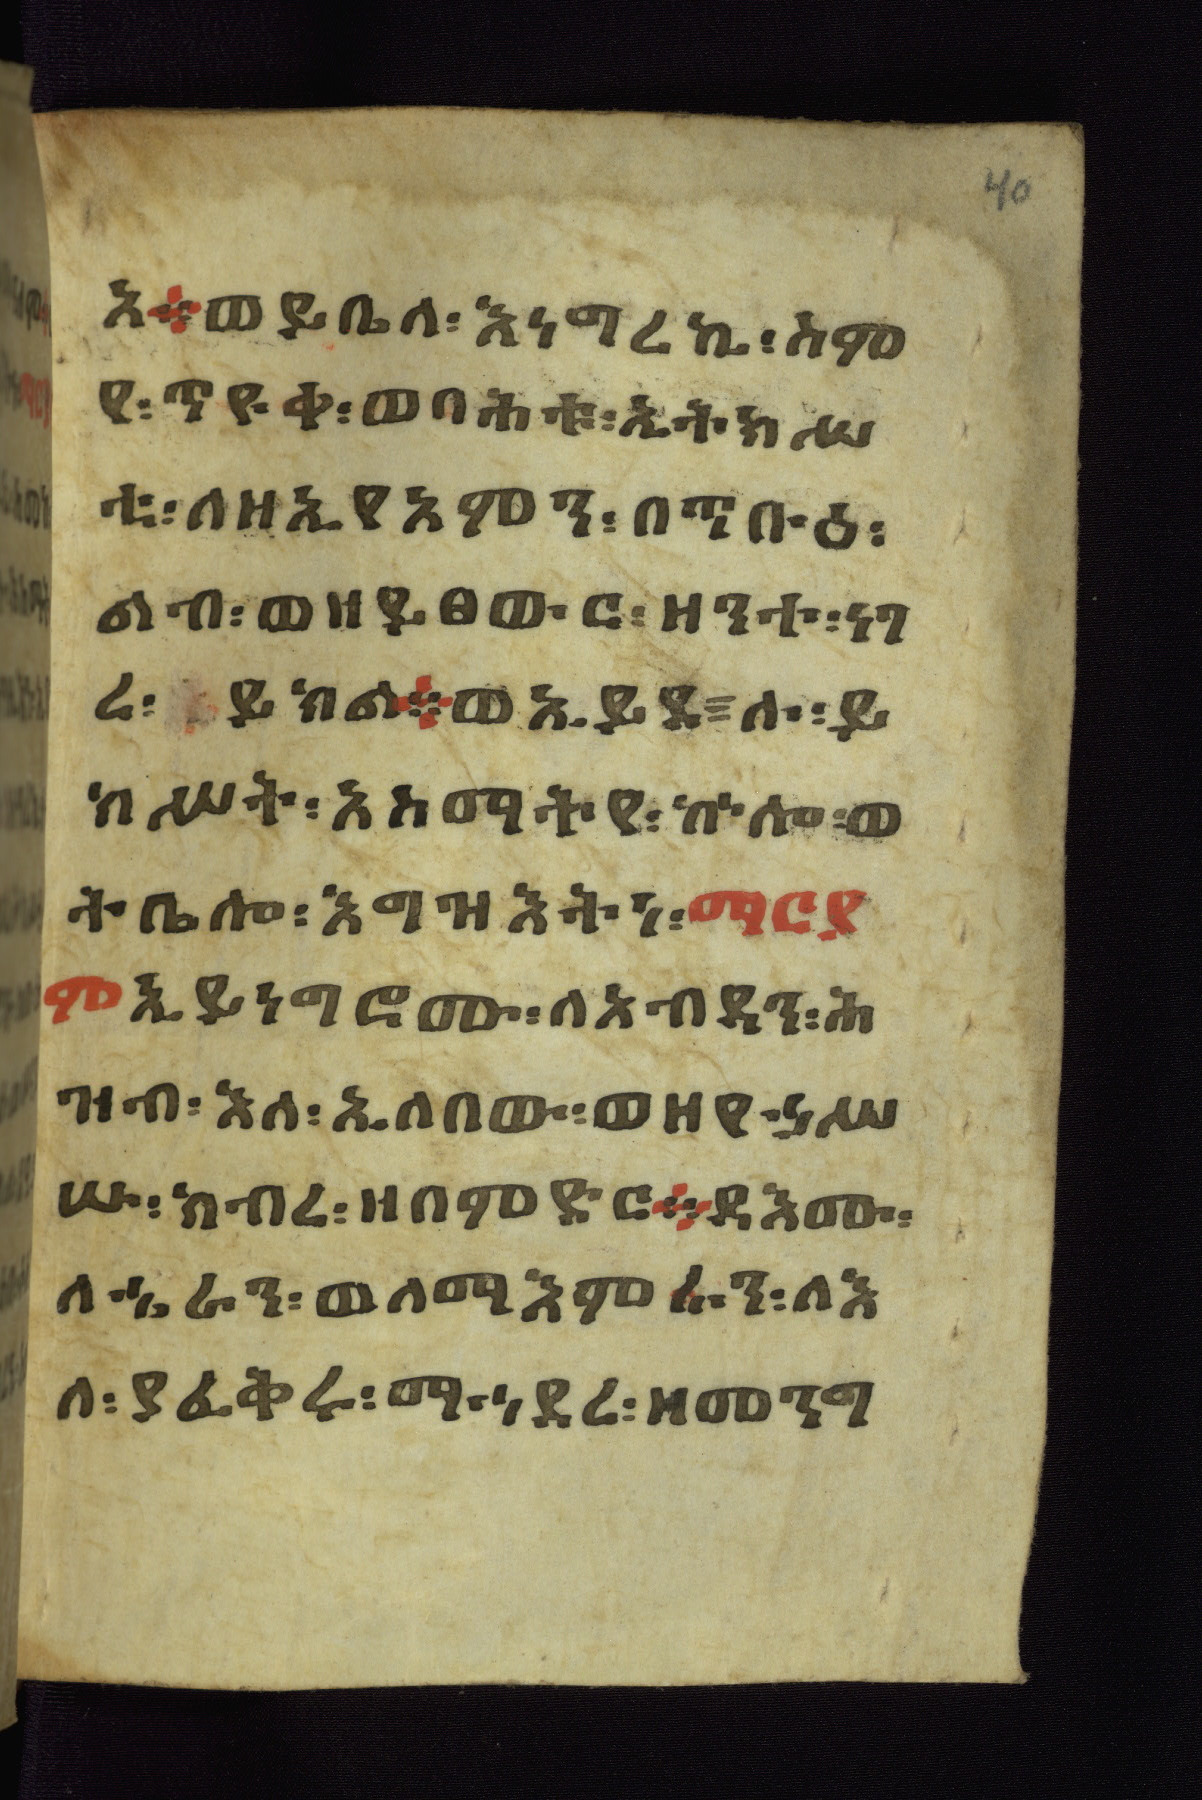 40
እ፨ወይቤላ፡እነግረኪ፡ስም
የ፡ጥዮቀ፡ወባሕቱ፡ኢትክሥ
ቲ፡ለዘኢየአምን፡በጥቡዕ፡
ልብ፡ወዘይፀውር፡ዘንተ፡ነገ
ረ፡ ይክል፨ወኢይደሉ፡ይ
ክሥት፡አስማትየ፡ኵሎ፡ወ
ትቤሎ፡እግዝእትነ፡ማርያ
ም ኢይነግሮሙ፡ለአብዳን፡ሕ
ዝብ፡እለ፡ኢለበው፡ወዘየኃሥ
ሡ፡ክብረ፡ዘበምድር፨ዳእሙ፡
ለኄራን፡ወለማእምራን፡ለእ
ለ፡ያፈቅሩ፡ማኅደረ፡ዘመንግ